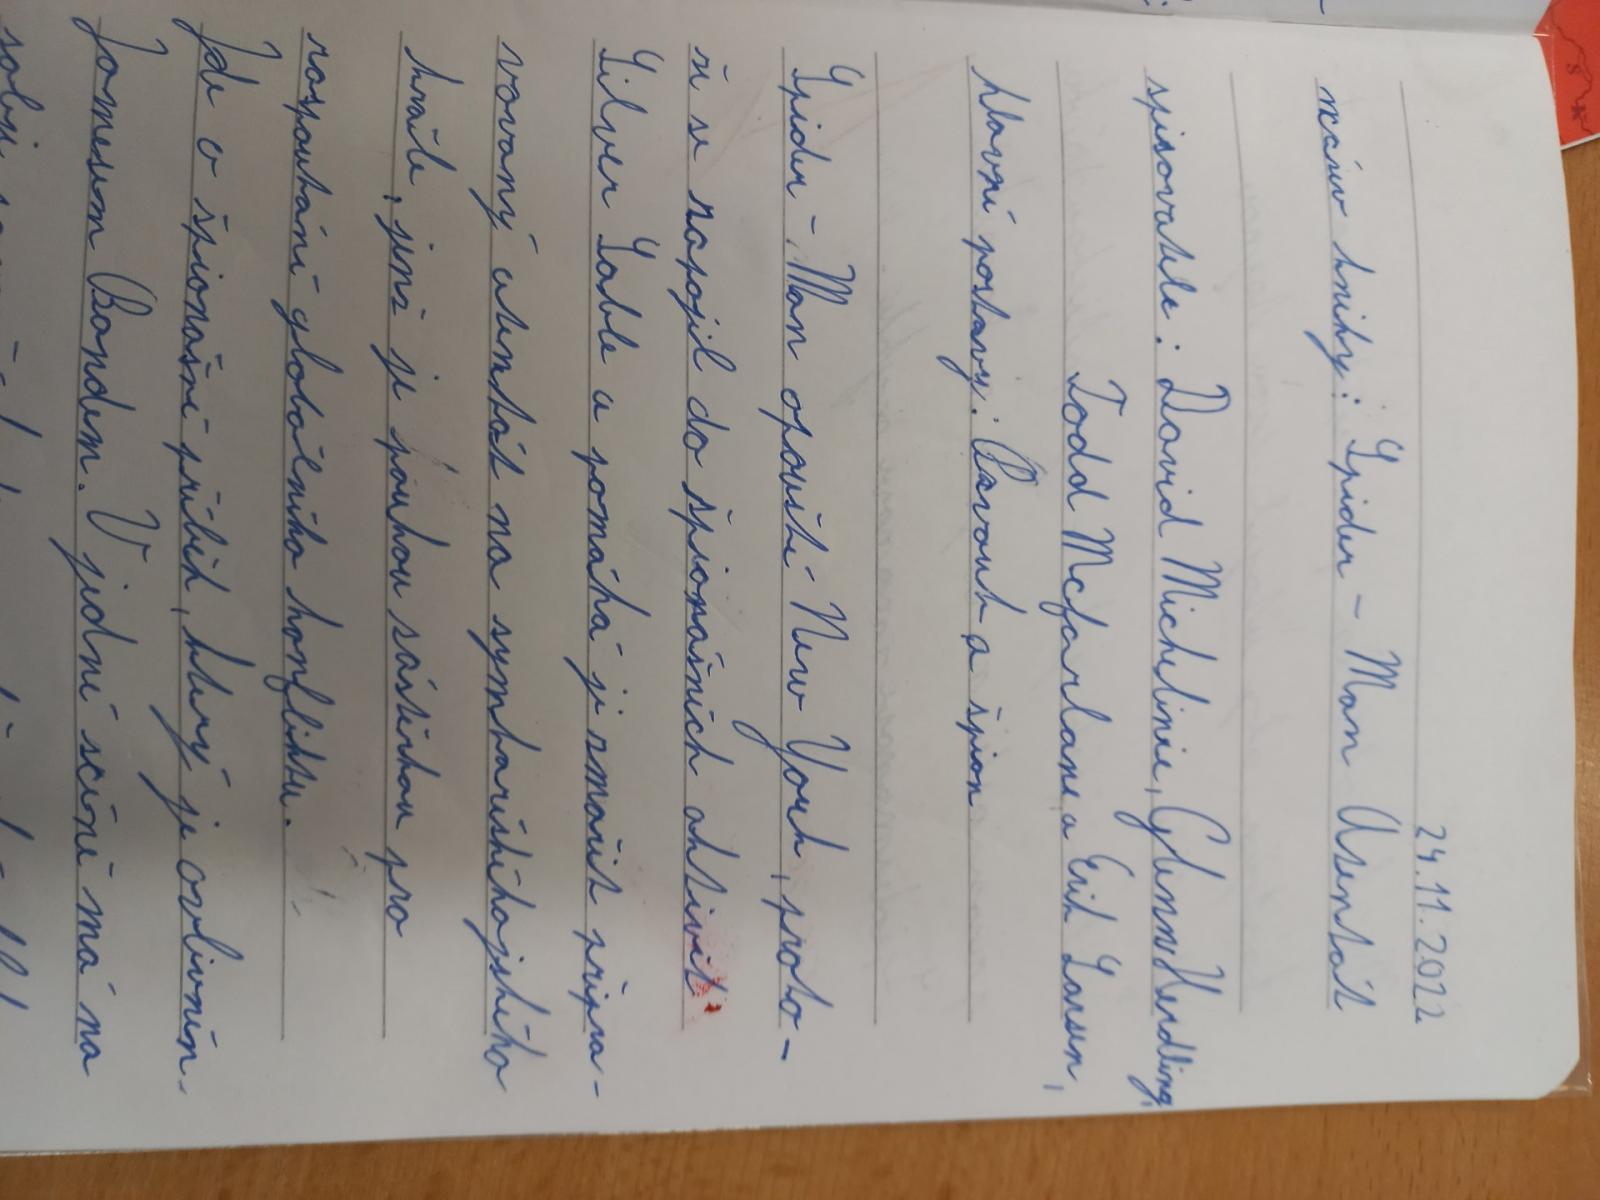 24.11.2022
název knihy: Spider - Man Atentát
spisovatele: David Michelinie, Glenn Herdling,
Todd Mcfarlane a Erik Larsen,
hlavní postavy: Pavouk a špion
Spider - Man opouští New York, proto-
že se zapojil do špionážních aktivit.
Silver Sable a pomáhá jí zmařit připra-
vovaný atentát na symkarištějského
krále, jenž je pouhou zástěrkou pro
rozpoutání globálního konfliktu.
Jde o špionážní příběh, který je ovlivněn
Jamesem Bondem. V jedné scéně má na